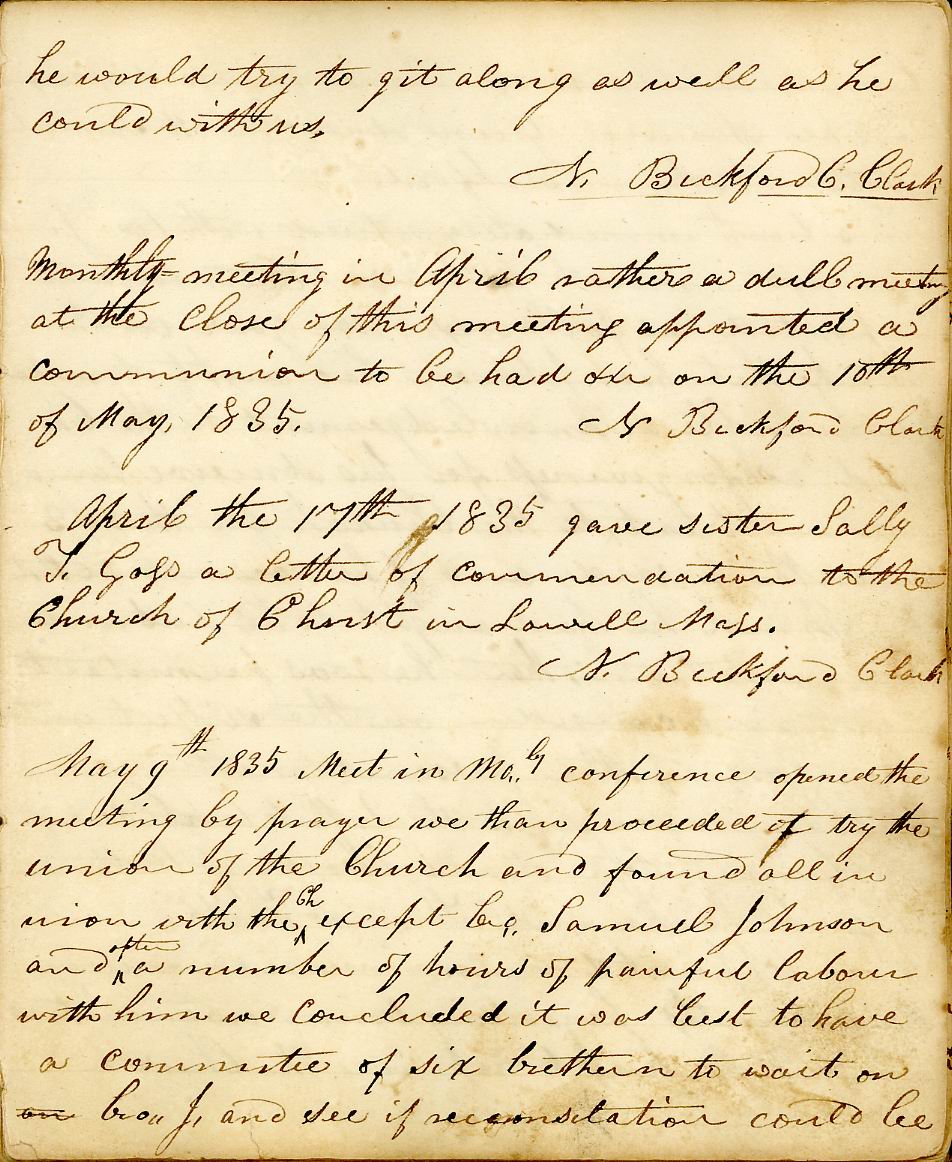 he would try to git along as well as he
could with us,
N. Bickford C. Clark
Monthly meeting in April rather a dull meeting
at the close of this meeting appointed a
communion to be had on the 10th
of May, 1835. N Bickford Clark
April the 17th 1835 gave sister Sally
T. Goss a letter of commendation to the
Church of Christ in Lowell Mass.
N. Bickford Clark
May 9th 1835 Meet in Mo.ly conference opened the
meeting by prayer we than proceeded of try the
union of the Church and found all in
union with the Ch except bro. Samuel Johnson
and after a number of hours of painful labour
with him we concluded it was best to have
a commitee of six brethern to wait on
on bro,, J, and see if reconsilation could be